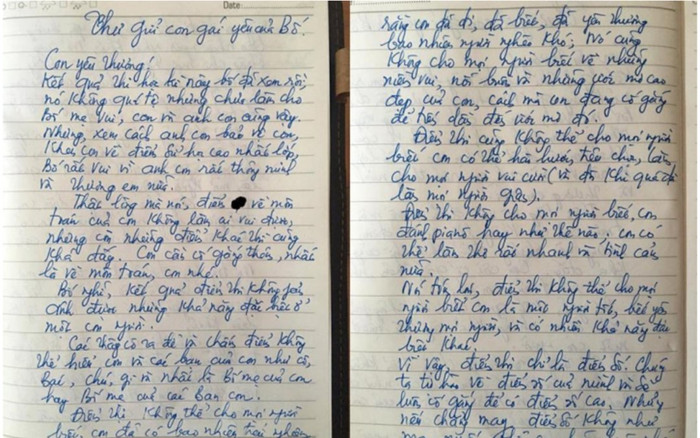 Date
Thư gửi con gái yêu của Bố.
Con yêu thương!
Kết quả thi học kì này bố đã xem rồi,
nó không quá tệ nhưng chưa làm cho
Bố mẹ vui, con và anh con cũng vậy.
Nhưng, xem cách anh con bảo vệ con,
khen con về điểm sử họ cao nhất lớp,
Bố rất vui vì anh con rất thông minh
và thương em nữa.
Thật lòng mà nói, điểm về môn
toán của con không làm ai vui được,
nhưng con những điểm khác thì cũng
khá đấy. Con cần cố gắng thêm, nhất
là về môn toán, con nhé.
Bố nghĩ, kết quả điểm thi không
định được những khả năng đặc biệt ở
mỗi con người.
Các thầy cô ra đề và chấm điểm không
thể hiểu con và các bạn của con như cô,
bác, chú, gì và nhất là Bố mẹ của con
hay Bố mẹ của các bạn con.
Điểm thi không thể cho mọi người
biết, con đã có bao nhiêu trải nghiệm
rằng con đã đi, đã biết, đã yêu thương
bao nhiêu người nghèo khó, Nó cũng
không cho mọi người biết về những
niềm vui, nỗi buồn và những ước mơ cao
đẹp của con, cách mà con đang cố gắng
để tiến đến với mơ đó.
Điểm thi cũng không thể cho mọi người
biết con có thể hài hước, tiếu chịu, làm
cho mọi người vui cười (và đôi khi quá
làm mọi người giận).
Điểm thi không cho mọi người biết, con
đánh piano hay như thế nào. con có
thể làm thơ rất nhanh và tình cảm
nữa.
Nói tóm lại, điểm thi không thể cho mọi
người biết con là một người tốt, biết yêu
thương mọi người, và có nhiều khả năng đặc
biệt khác.
Vì vậy, điểm thi chỉ là điểm số. Chúng
ta tự hào về điểm số của mình và sẽ
luôn cố gắng để có điểm số cao. Nhưng
nếu chẳng may điểm số không như